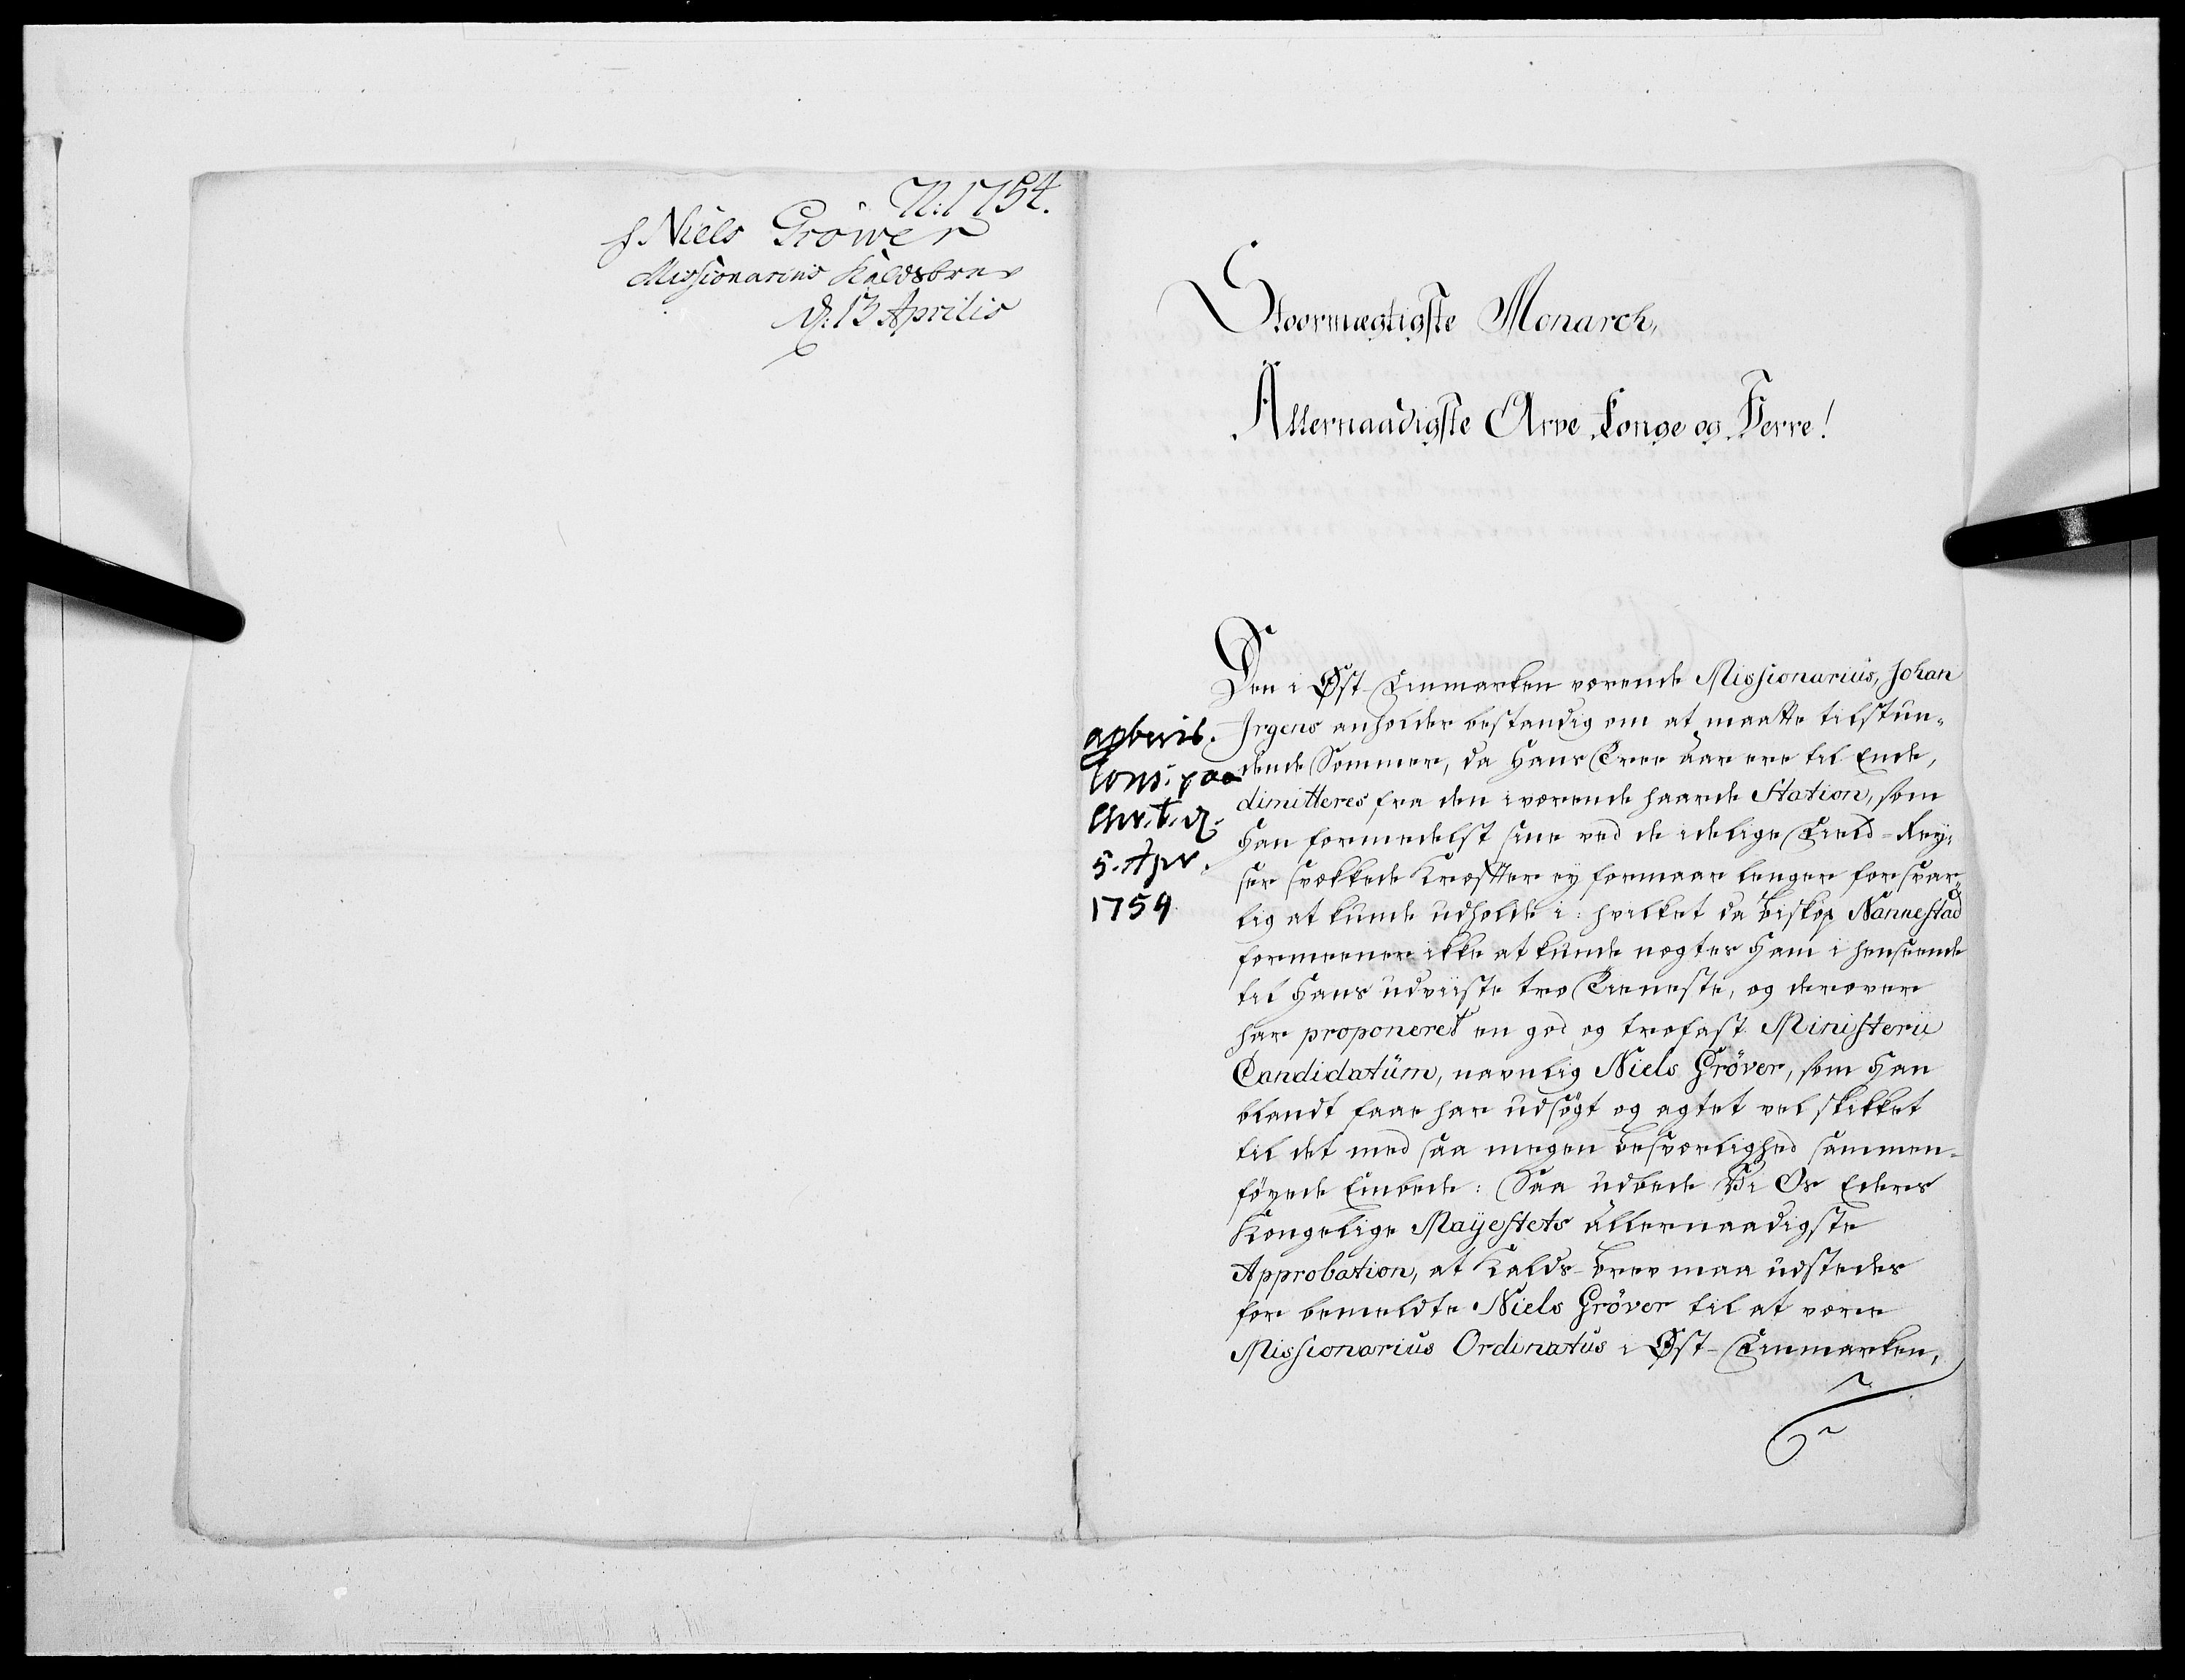 N: 1754.
f Niels Gröwer
Missionarius Kaldsbrev
d: 13 Aprilis
Stoormægtigste Monarch,
Allernaadigste Arve Konge og Herre!
Den i Øst-Finmarken værende Missionarius, Johan
Irgens anholder bestandig om at maatte tilstun-
dende Sommer, da Hans Tree Aar ere til Ende,
dimitteres fra den iværende haarde Station, som
Han formedelst sine ved de idelige Field-Rey-
ser svækkede Kræfter ey formaar lenger forsvar-
lig at kunde udholde i: hvilket da Biskop Nannestad
formeener ikke at kunde nægtes Ham i henseende
til Hans udviiste troe Tieneste, og derover
har proponeret en god og trofast Ministerii
Candidatum, navnlig Niels Gröver, som Han
blandt faae har udsögt og agtet vel skikket
til det med saa megen Besværlighed sammen-
föyede Embede: Saa udbede Vi Os Eders
Kongelige Mayestets allernaadigste
Approbation, at Kalds-Brev maa udstedes
for bemeldte Niels Gröver til at være
Missionarius Ordinatus i Øst-Finmarken,
paa
5. Apr.
1754